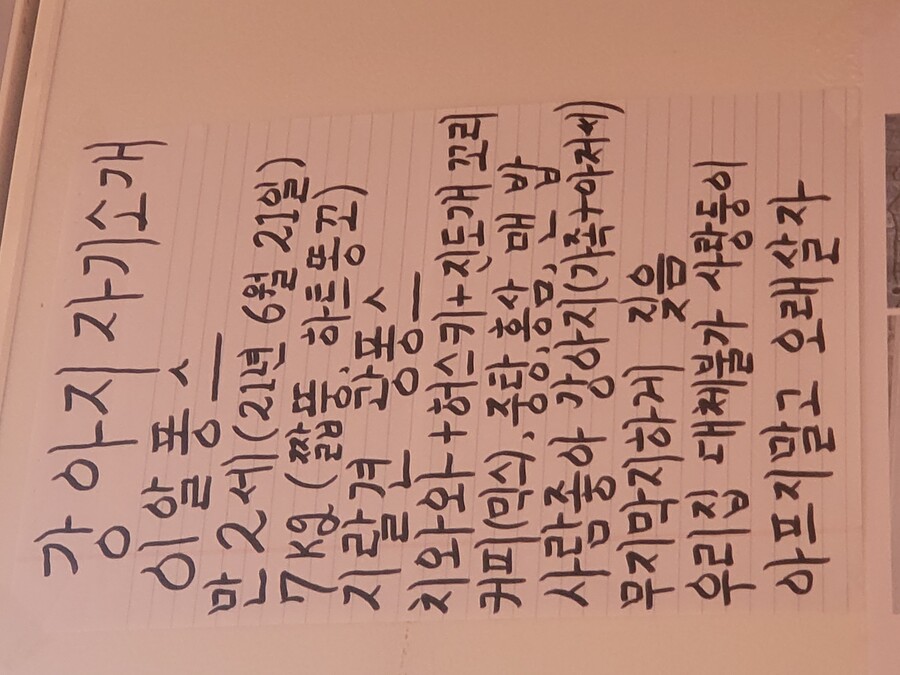 강아지 자기소개
이알퐁스
만 2세 (21년 6월 21일)
7kg (짧퐁, 하트똥꼬)
지랄견
치와와+허스키+진도개 꼬리
커피(믹식),
사람좋아 강아지(가족+아저씨)
무지막지하게 짖음
우리집 대체불가 사랑둥이
아프지말고 오래살자